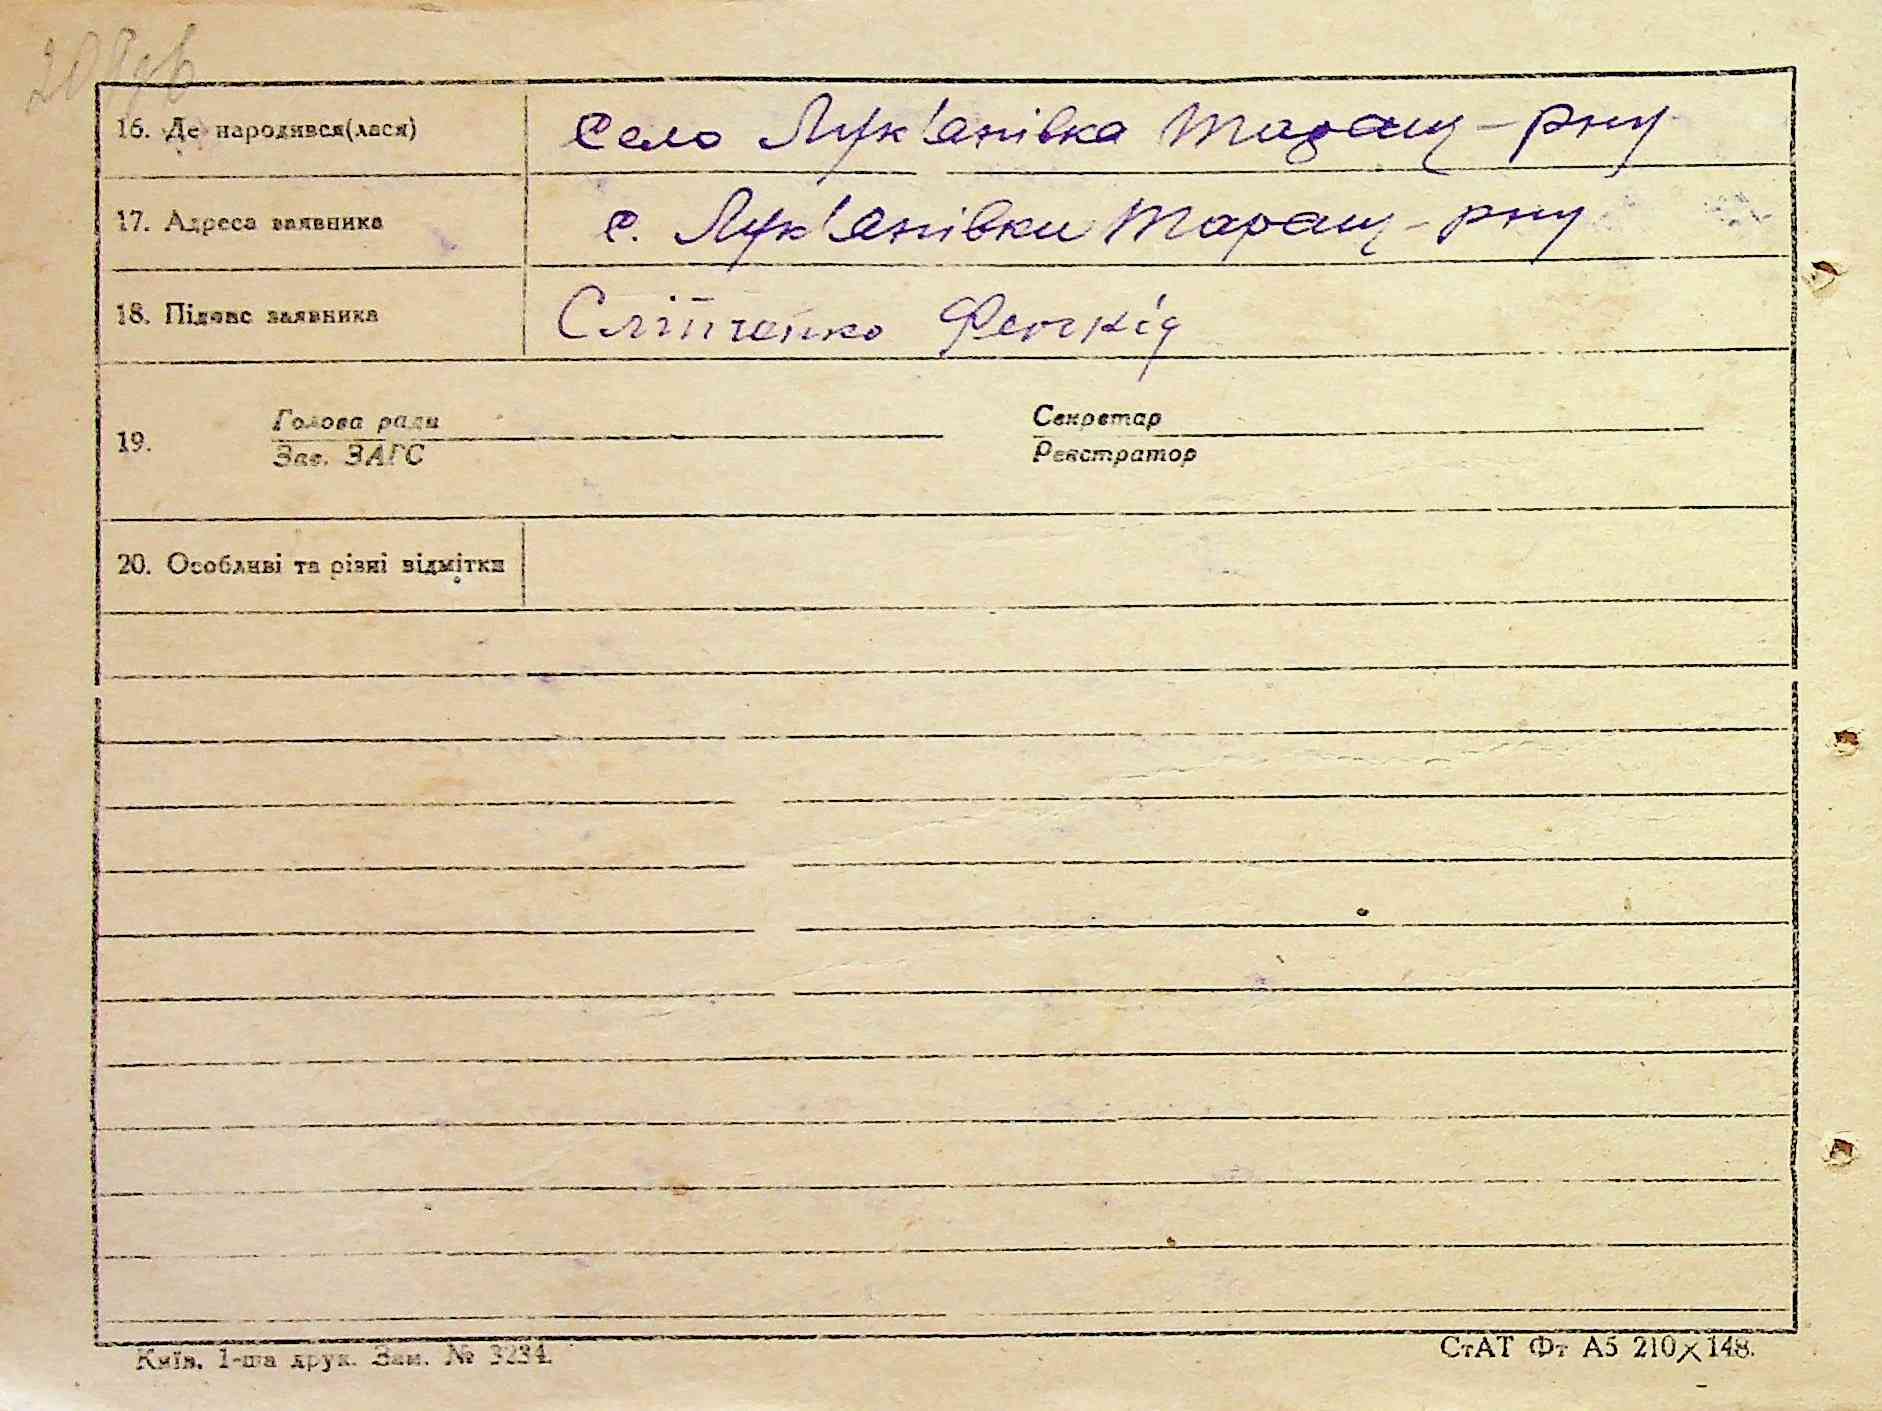 16. Де народився(лася) Село Лук'янівка Таращ-рну
17. Адреса заявника с. Лук'янівки Таращ-рну
18. Підпис заявника Сліпченко
19. Голова ради Секретар
Зав. ЗАГС Реєстратор
20. Особливі та різні відмітки
Київ. 1-ша друк. Зам. № 3234. СтАТ Фт А5 210×148.